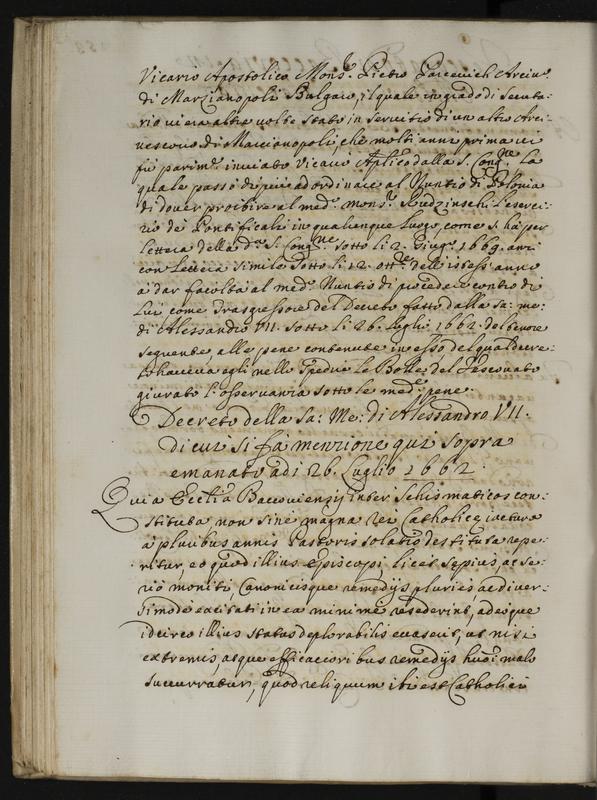 Vicario Apostolico Mons.r Pietro Parcevich Arciv.o
di Marzianopoli Bulgaro, il quale in grado di Secreta:
rio vi era altre volte stato in servitio di un altro Arci:
vescovo di Marcianopoli, che molti anni prima vi
fù parim.te inviato Vicario Aplico dalla S. Cong.ne. La
quale passò di più ad ordinare al Nuntio di Polonia
di dover proibire al med.o mons.r Rudzinschi l'eserci:
tio de Pontificali in qualunque luogo, come s'hà per
lettera della d.a S. Cong.ne sotto li 2. Giug.o 1669. anzi
con lettera simile sotto li 12. ott.re dell'istess'anno
à dar facoltà al med.o Nuntio di procedere contro di
lui come trasgressore del Decreto fatto dalla sa: me:
di Alessandro VII. sotto li 26. luglio 1662. del tenore
seguente, alle pene contenute in esso del qual decre:
to haveva egli nello spedire le Bolle del Vescovato
giurato l'osservanza sotto le med.e pene.
Decreto della Sa: Me: di Alessandro VII.
di cui si fà menzione qui sopra
emanato adi 26. Luglio 1662.
Quia Ecclia Baccoviensis inter Schismaticos con:
stituta non sine magna rei Catholicę iactura
à pluribus annis Pastoris solatio destituta repe:
ritur, eo quod illius Episcopi licet sępius, ac se:
riò moniti, Canonicisque remedijs pluries ac diver:
simode excitati in ea minimè resederint, adeoque
idcirco illius status deplorabilis evaserit, ut nisi
extremis, atque efficacioribus remedijs huoi malo
succurratur, quod reliquum ibi est Catholici